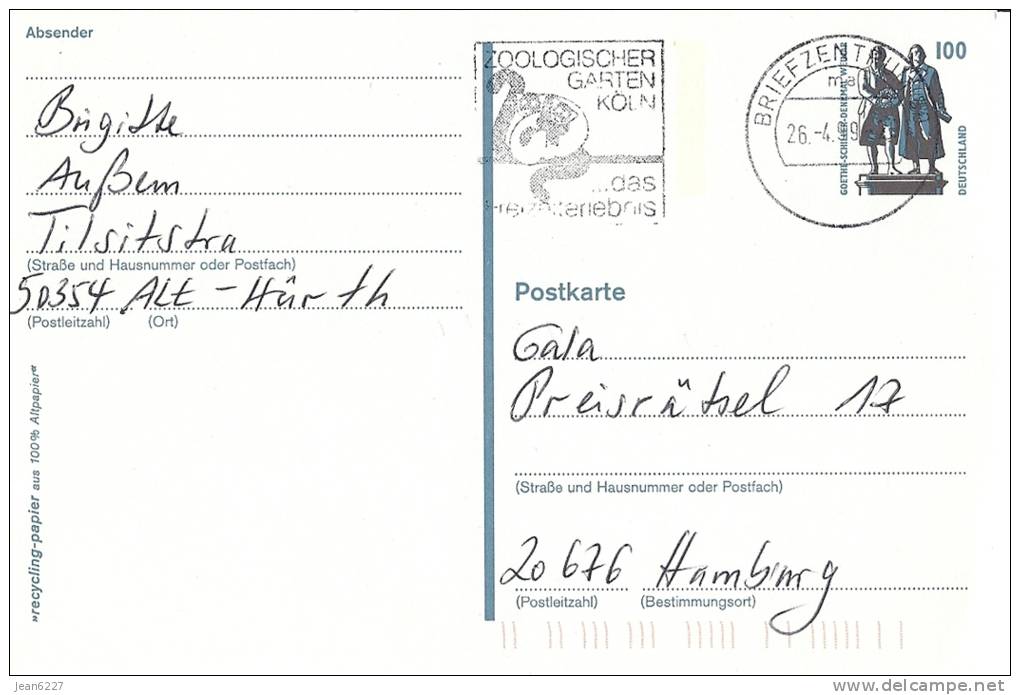 Absender
Brigitte
Außem
Tilsitstra
(Straße und Hausnummer oder Postfach)
50354 ALt - Hürth
(Postleitzahl) (Ort)
»recycling-papier aus 100% Altpapier«
ZOOLOGISCHER
GARTEN
KÖLN
...das
Freizeiterlebnis
BRIEFZENTRUM
26.-4.99
100
GOETHE-SCHILLER-DENKMAL WEIMAR
DEUTSCHLAND
Postkarte
Gala
Preisrätsel 17
(Straße und Hausnummer oder Postfach)
20676 Hamburg
(Postleitzahl) (Bestimmungsort)
jean6227
delcampe.net